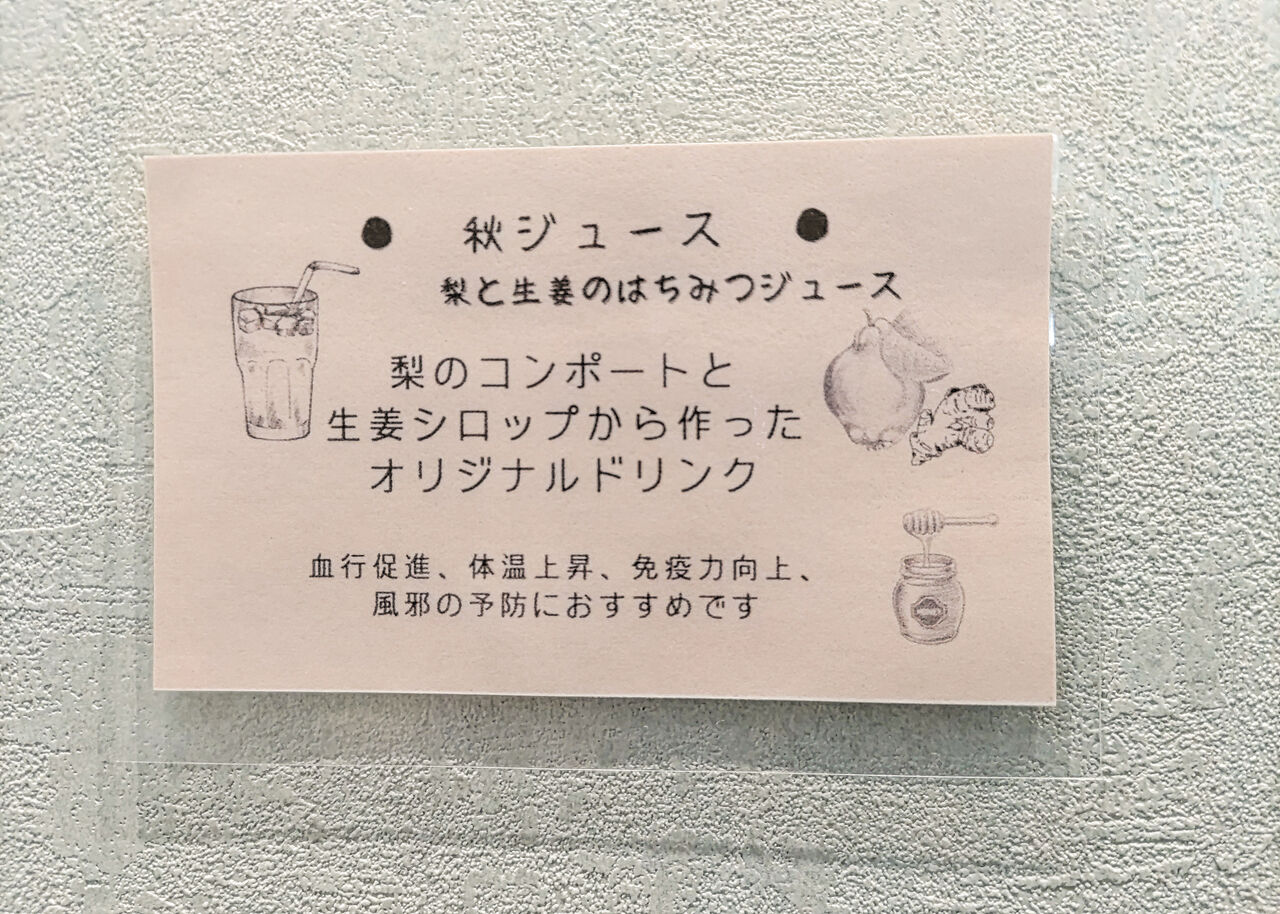 ● 秋ジュース ●
梨と生姜のはちみつジュース
梨のコンポートと
生姜シロップから作った
オリジナルドリンク
血行促進、体温上昇、免疫力向上、
風邪の予防におすすめです